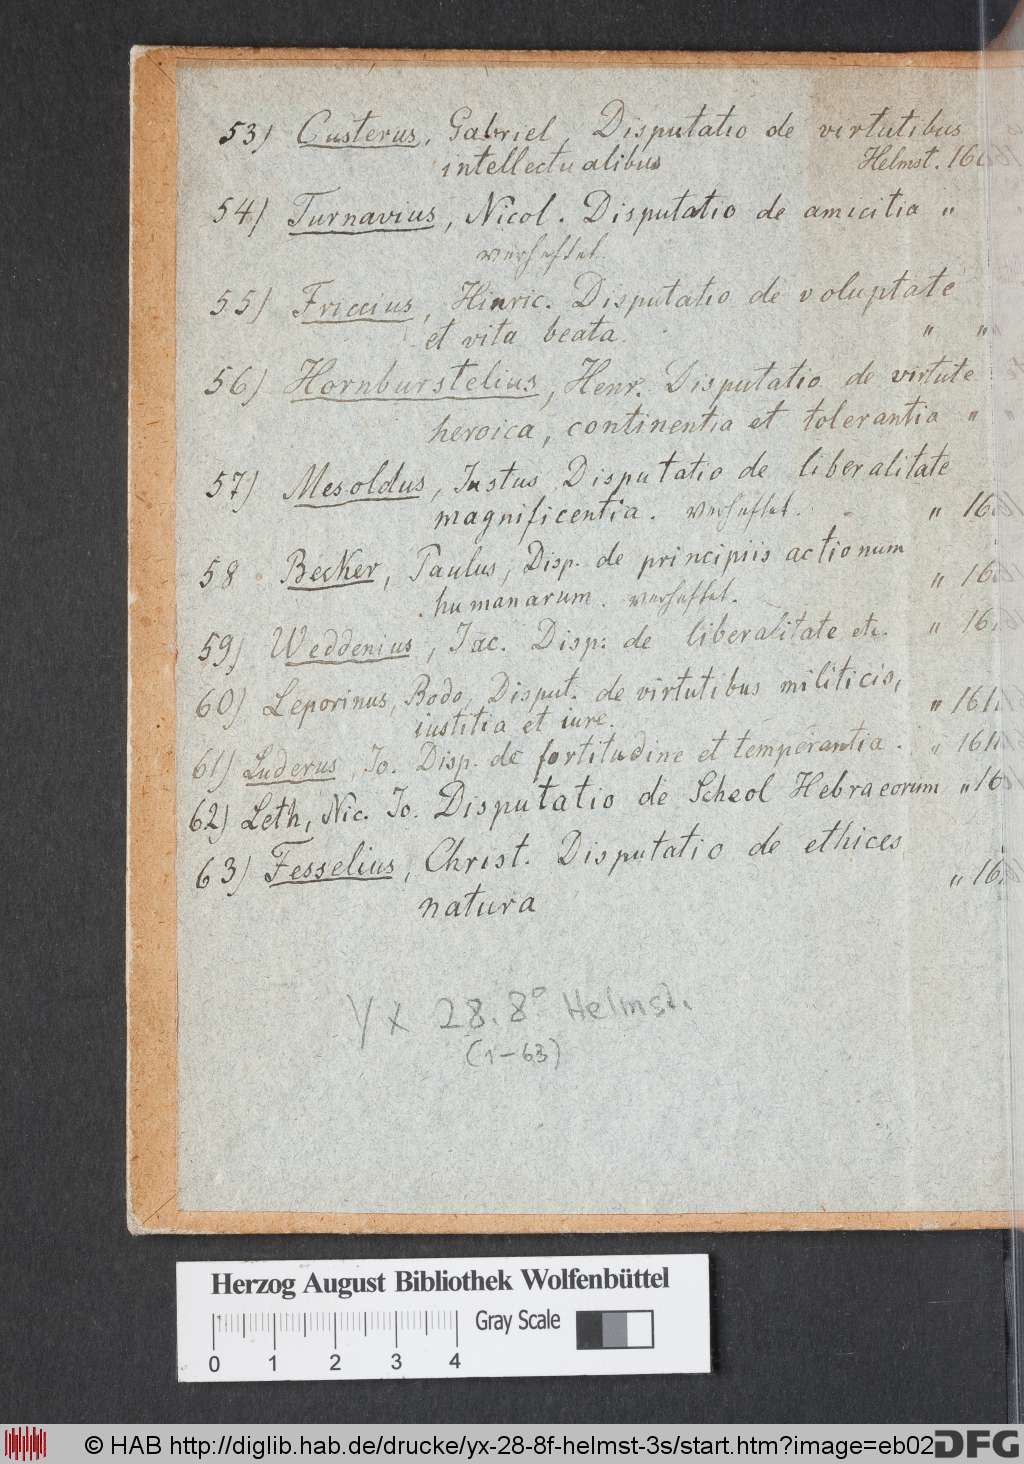 53) Custerus, Gabriel, Disputatio de virtutibus
intellectualibus Helmst. 160
54) Turnavius, Nicol. Disputatio de amicitia "
verheftet.
55) Friccius, Hinric. Disputatio de voluptate
et vita beata. " "
56) Hornburstelius, Henr. Disputatio de virtute
heroica, continentia et tolerantia "
57) Mesoldus, Justus Disputatio de liberalitate
magnificentia. verheftet. " 16
58 Becker, Paulus, Disp. de principiis actionum
humanarum. verheftet. " 16
59) Weddenius, Jac. Disp: de liberalitate etc. " 16
60) Leporinus, Bodo, Disput. de virtutibus militicis,
iustitia et iure. " 161
61) Luderus, Jo. Disp. de fortitudine et temperantia. " 16
62) Leth, Nic. Jo. Disputatio de Scheol Hebraeorum " 16
63) Fesselius, Christ. Disputatio de ethices
natura " 16
Yx 28. 8° Helmst.
(1-63)
Herzog August Bibliothek Wolfenbüttel
Gray Scale
0 1 2 3 4
© HAB http://diglib.hab.de/drucke/yx-28-8f-helmst-3s/start.htm?image=eb02
DFG